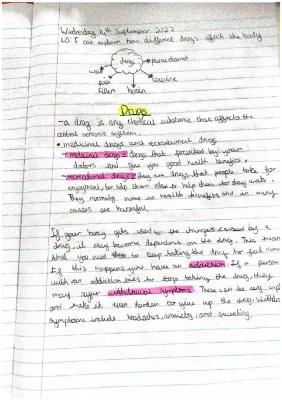 Wednesday 14th September 2022
LO: I can explain how different drugs affect the body
drugs
paracetamol
weed
pain
killers
heroin
cocaine
Drugs
- a drug is any chemical substance that affects the
central nervous system.
• medicinal drugs and recreational drug
- medicinal drugs = drugs that provided by your
doctors and give you good health benefits.
- recreational drugs = they are drugs that people take for
enjoyment, to help them or help them to stay awake.
They normally have no health benefits and in many
causes are harmful.
If your body gets used to the changes caused by a
drug, it may become dependent on the drug. This means
that you need to keep taking the drug to feel normal
If this happens you have an addiction If a person
with an addiction tries to stop taking the drug, they
may suffer withdrawal symptoms. These can be very
and make it even harder to give up the drug. Withdrawal
symptoms include headaches, anxiety, and sweating.